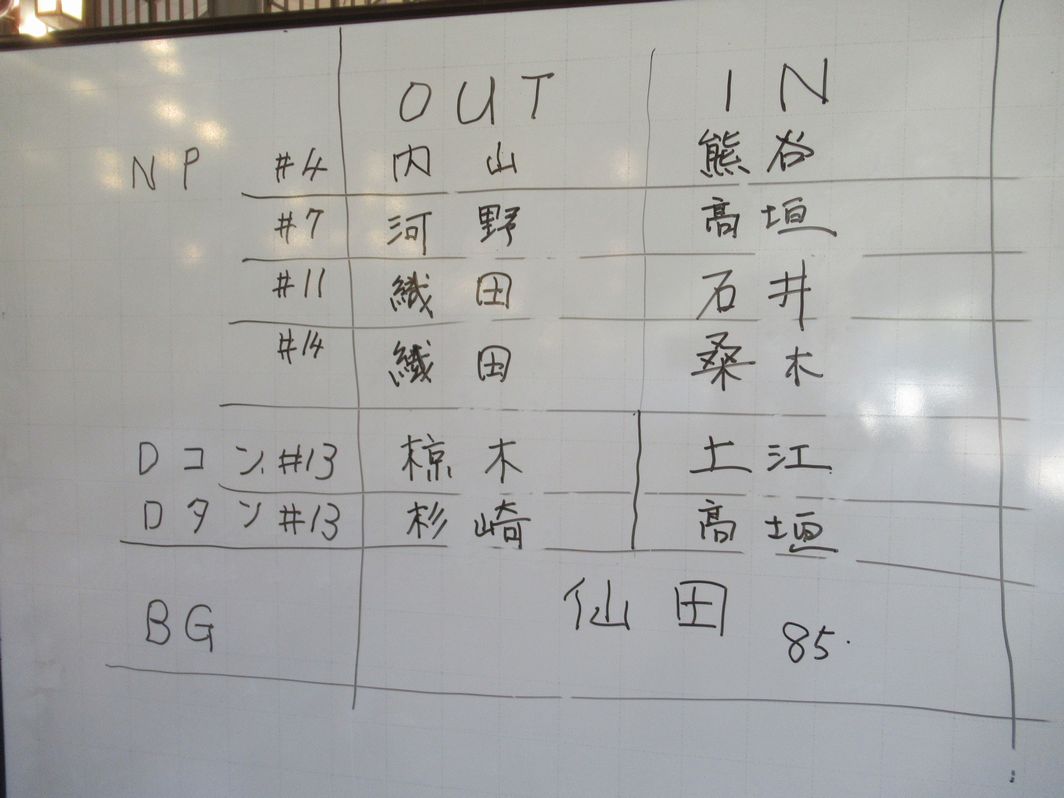 OUT IN
NP #4 内山 熊谷
#7 河野 高垣
#11 織田 石井
#14 織田 桑木
Dコン #13 椋木 土江
Dタン #13 杉崎 高垣
BG 仙田 85.